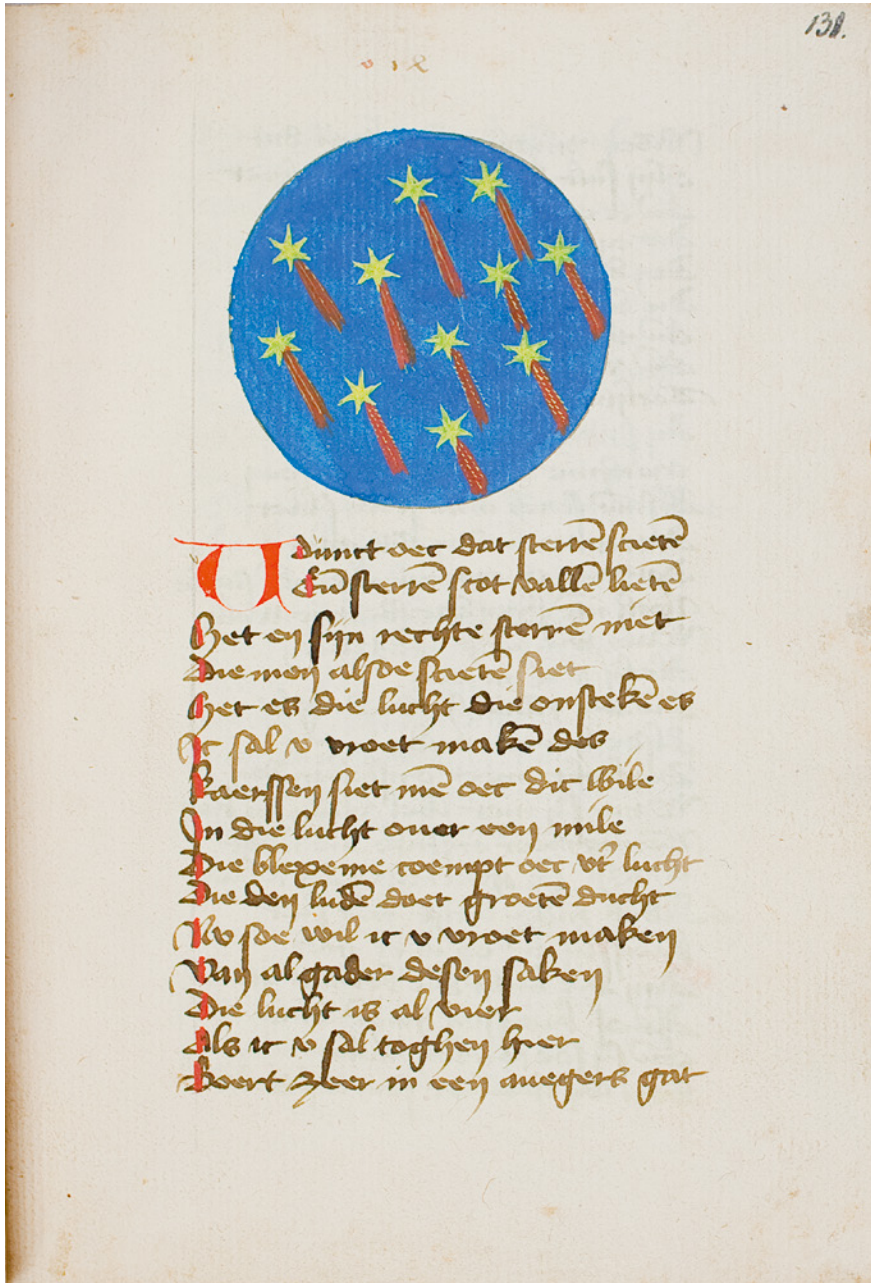 131.
U dunct oec dat sterrē scietē
Eñ sterrē scot vallē lietē
Het en sijn rechte sterrē niet
Die men alsoe scietē siet
Het es die lucht die onstekē es
Ic sal v vroet makē des
Kaerssen siet mē oec dic wile
In die lucht ouer een mile
Die blexeme coempt oec vter lucht
Die den ludē doet groetē ducht
Nv soe wil ic v vroet maken
Van al gader desen saken
Die lucht is al vier
Als ic v sal toghen hier
Boert zeer in een auegers gat